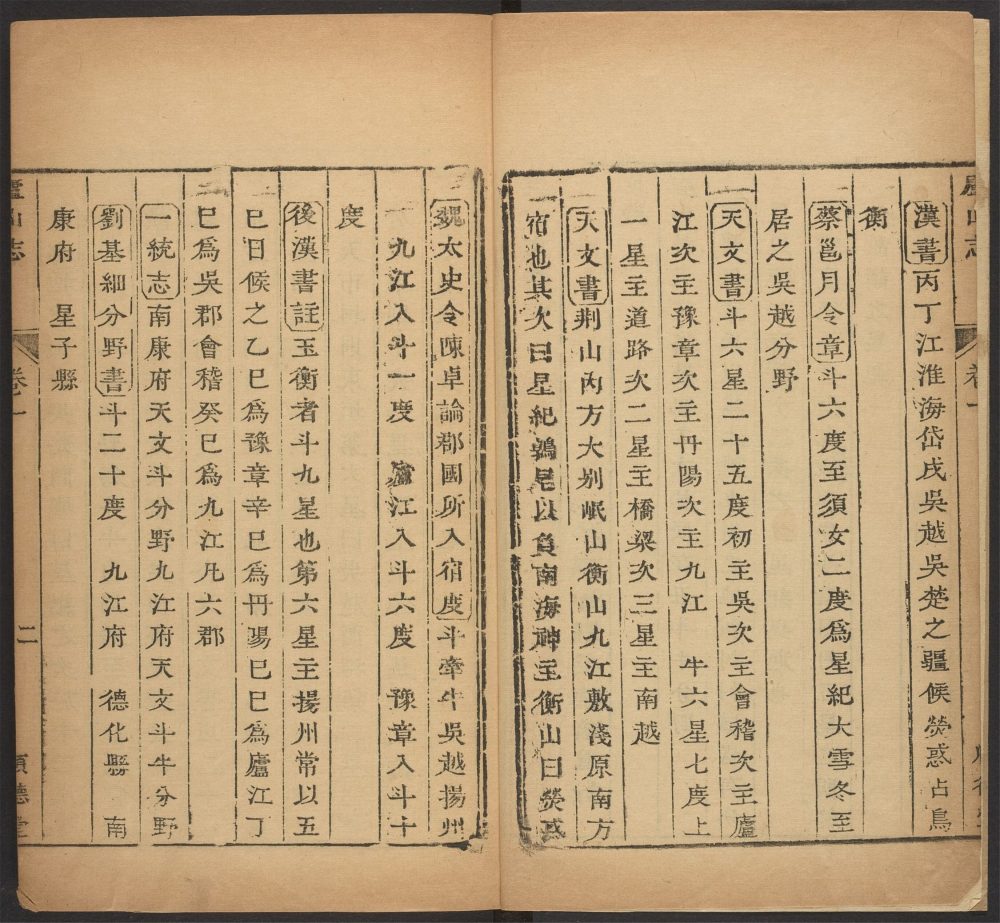 漢書丙丁江淮海岱戌吳越吳楚之疆候熒惑占鳥
衡
蔡邕月令章斗六度至須女二度爲星紀大雪冬至
居之吳越分野
天文書斗六星二十五度初主吳次主會稽次主廬
江次主豫章次主丹陽次主九江 牛六星七度上
一星主道路次二星主橋梁次三星主南越
天文書荆山內方大别岷山衡山九江敷淺原南方
宿也其次曰星紀鶉尾以負南海神主衡山曰熒惑
魏太史令陳卓論郡國所入宿度斗牽牛吳越揚州
九江入斗一度 廬江入斗六度 豫章入斗十
度
後漢書註玉衡者斗九星也第六星主揚州常以五
巳日候之乙巳爲豫章辛巳爲丹陽己巳爲廬江丁
巳爲吳郡會稽癸巳爲九江凡六郡
一統志南康府天文斗分野九江府天文斗牛分野
劉基細分野書斗二十度 九江府 德化縣 南
康府 星子縣
廬山志 卷一 二 順德堂